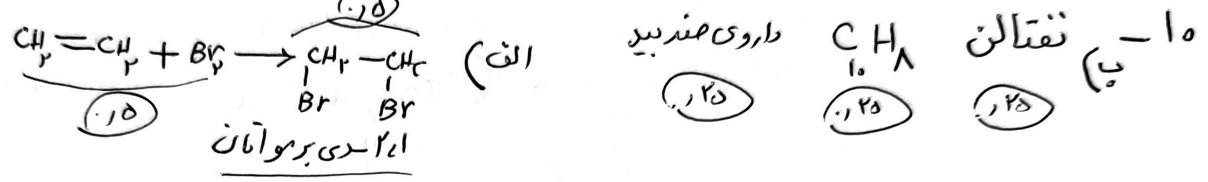 ۱۰ـ ب) نفتالن C₁₀H₈ داروی ضد بید
۰٫۲۵ ۰٫۲۵ ۰٫۲۵
۰٫۵
الف) CH₂=CH₂ + Br₂ → CH₂—CH₂
Br Br
۰٫۵
۱،۲ـدی برمو اتان